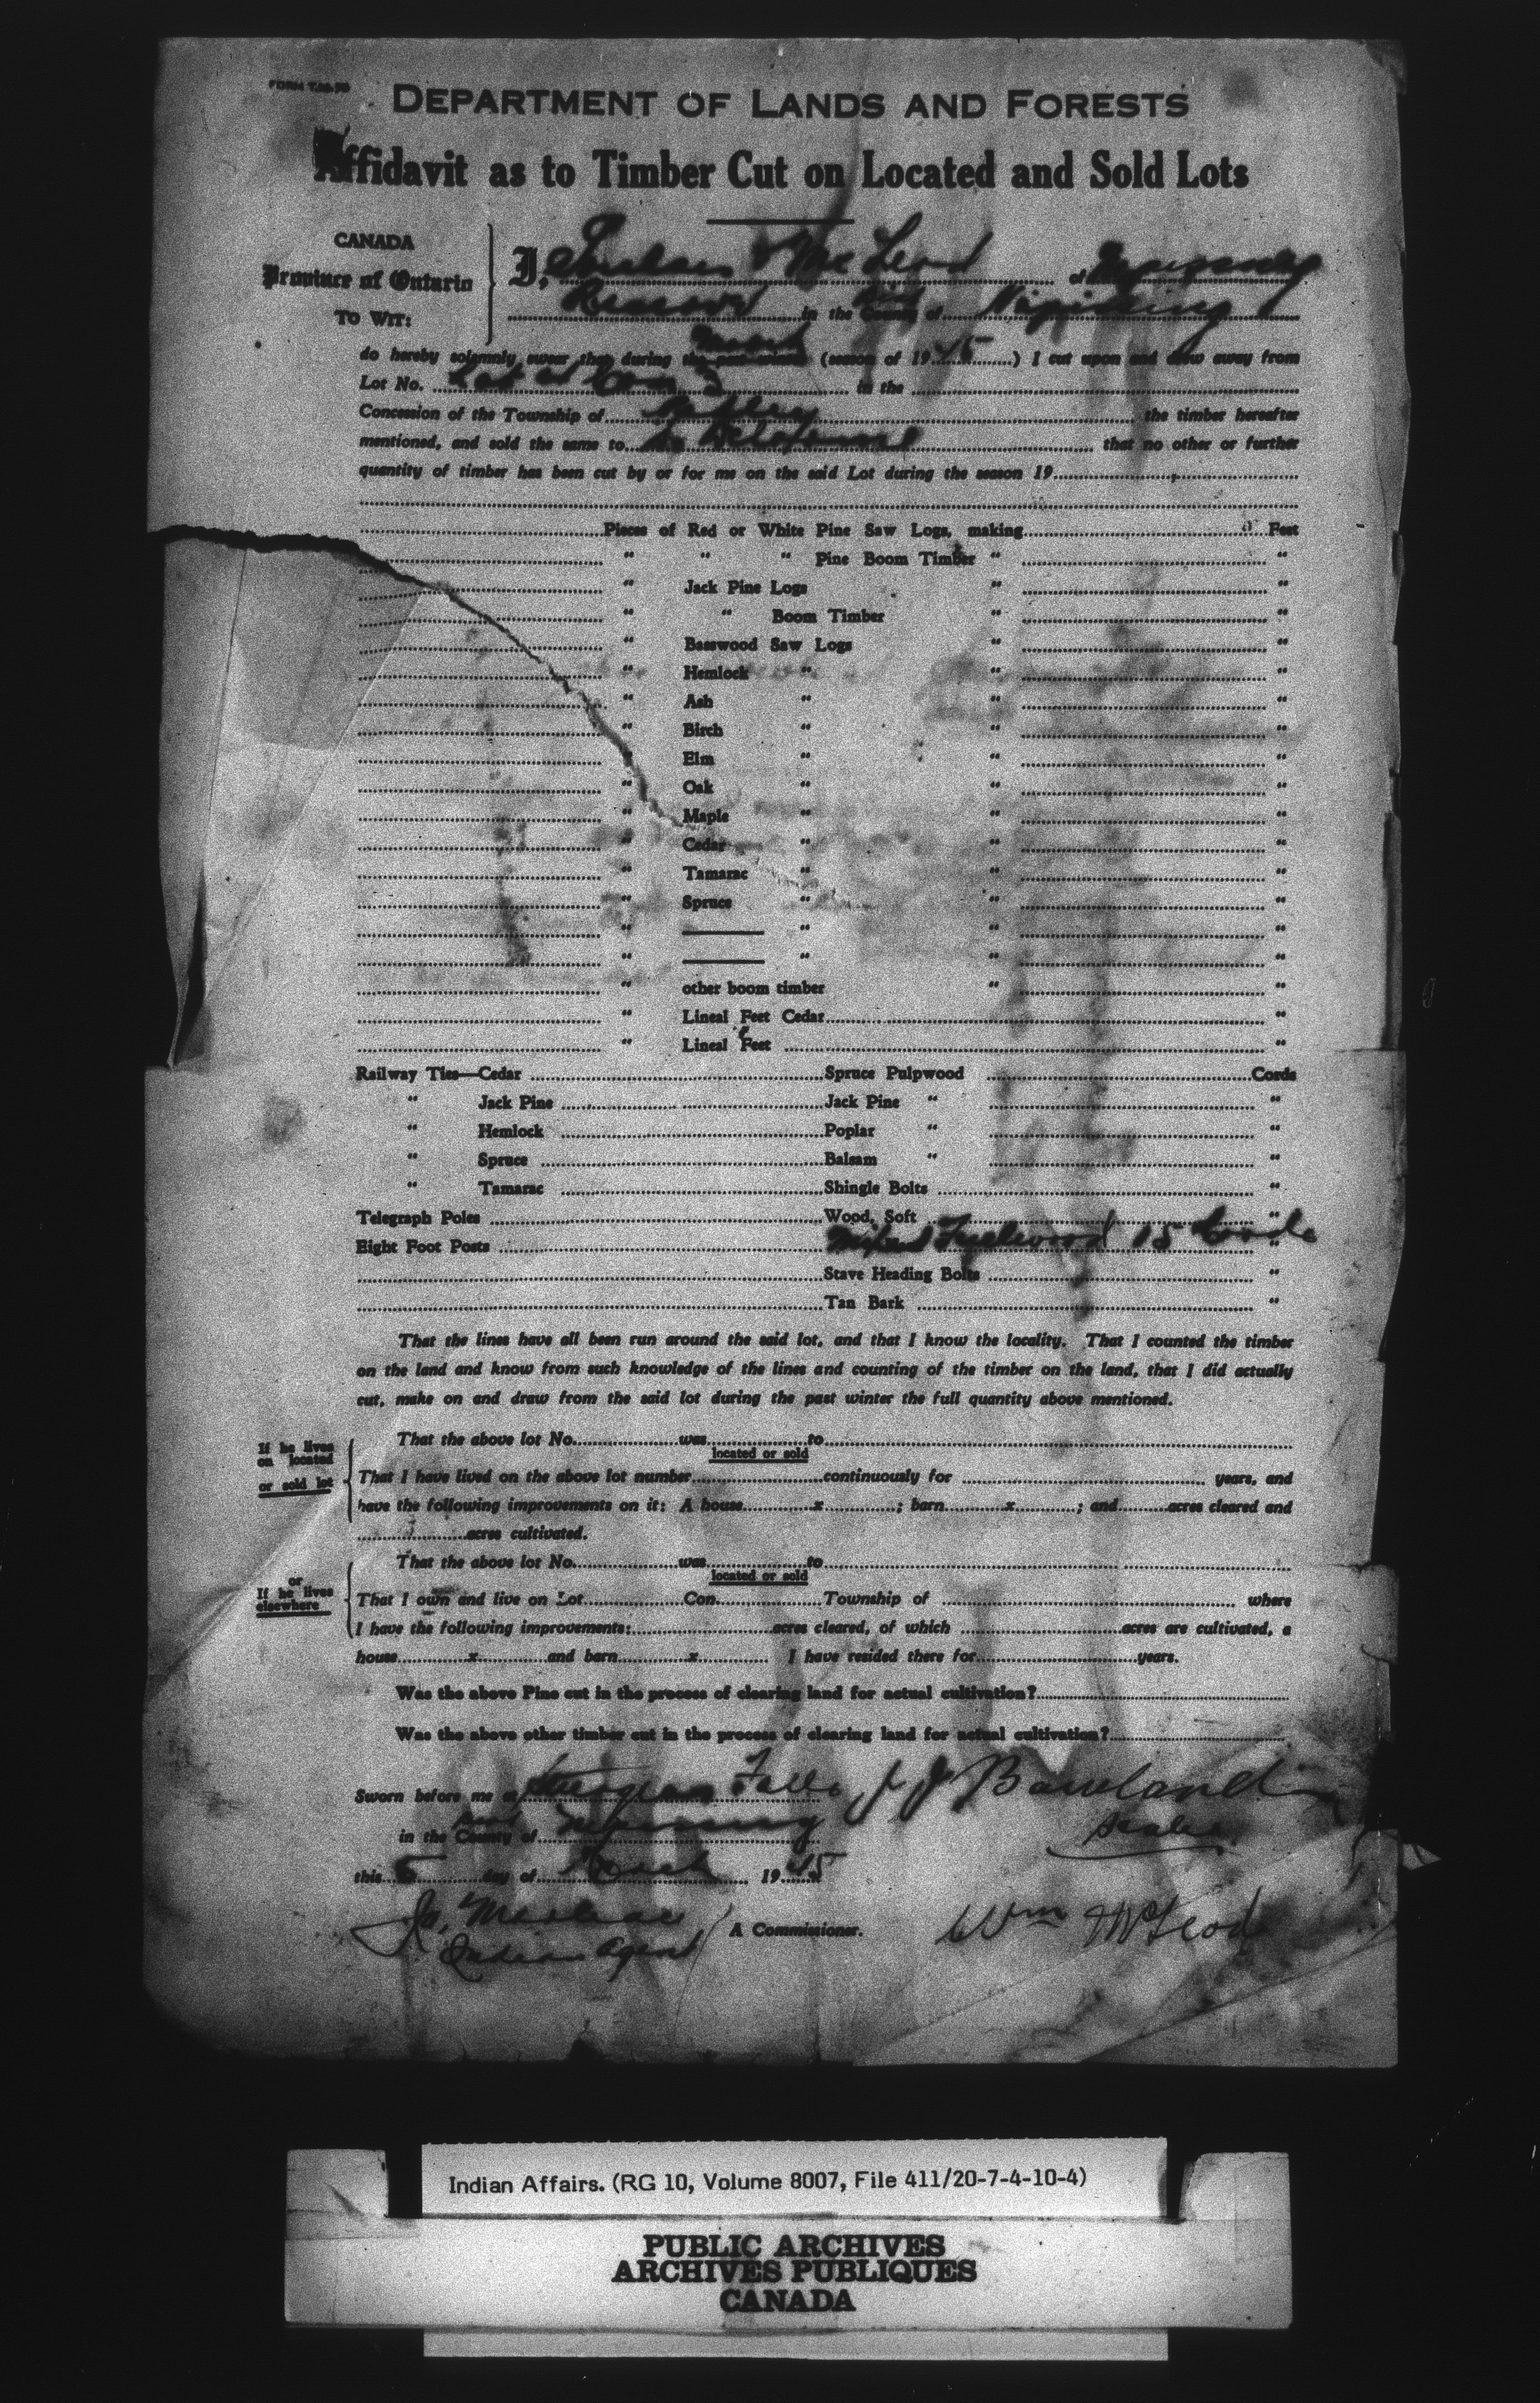 FORM T.M.70
DEPARTMENT OF LANDS AND FORESTS
Affidavit as to Timber Cut on Located and Sold Lots
CANADA
Province of Ontario
TO WIT:
I, & McLeod of
Reserve in the Dist County of Nipissing
do hereby solemnly swear that during the (season of 1945) I cut upon and drew away from
Lot No. Con 3 in the
Concession of the Township of the timber hereafter
mentioned, and sold the same to that no other or further
quantity of timber has been cut by or for me on the said Lot during the season 19
Pieces of Red or White Pine Saw Logs, making Feet
" " " Pine Boom Timber " "
" Jack Pine Logs " "
" " Boom Timber " "
" Basswood Saw Logs " "
" Hemlock " " "
" Ash " " "
" Birch " " "
" Elm " " "
" Oak " " "
" Maple " " "
" Cedar " " "
" Tamarac " " "
" Spruce " " "
" " " "
" " " "
" other boom timber " "
" Lineal Feet Cedar "
" Lineal Feet "
Railway Ties—Cedar Spruce Pulpwood Cords
" Jack Pine Jack Pine " "
" Hemlock Poplar " "
" Spruce Balsam " "
" Tamarac Shingle Bolts "
Telegraph Poles Wood, Soft "
Eight Foot Posts Mixed Fuelwood 15 Cords "
Stave Heading Bolts "
Tan Bark "
That the lines have all been run around the said lot, and that I know the locality. That I counted the timber
on the land and know from such knowledge of the lines and counting of the timber on the land, that I did actually
cut, make on and draw from the said lot during the past winter the full quantity above mentioned.
If he lives
on located
or sold lot
That the above lot No. was to
located or sold
That I have lived on the above lot number continuously for years, and
have the following improvements on it: A house x ; barn x ; and acres cleared and
acres cultivated.
or
If he lives
elsewhere
That the above lot No. was to
located or sold
That I own and live on Lot Con. Township of where
I have the following improvements: acres cleared, of which acres are cultivated, a
house x and barn x I have resided there for years.
Was the above Pine cut in the process of clearing land for actual cultivation?
Was the above other timber cut in the process of clearing land for actual cultivation?
Sworn before me at Sturgeon Falls J J Bawland
in the County of Nipissing Scaler
this 5 day of March 1945
A Commissioner. Wm McLeod
Indian Agent
Indian Affairs. (RG 10, Volume 8007, File 411/20-7-4-10-4)
PUBLIC ARCHIVES
ARCHIVES PUBLIQUES
CANADA